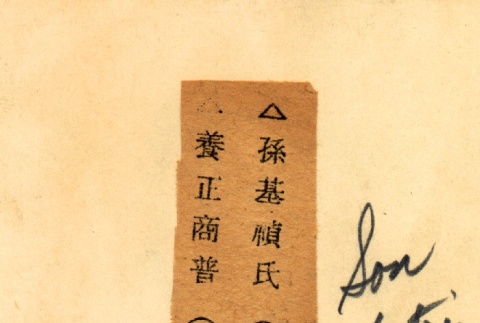 △孫基禎氏
養正商普
Son